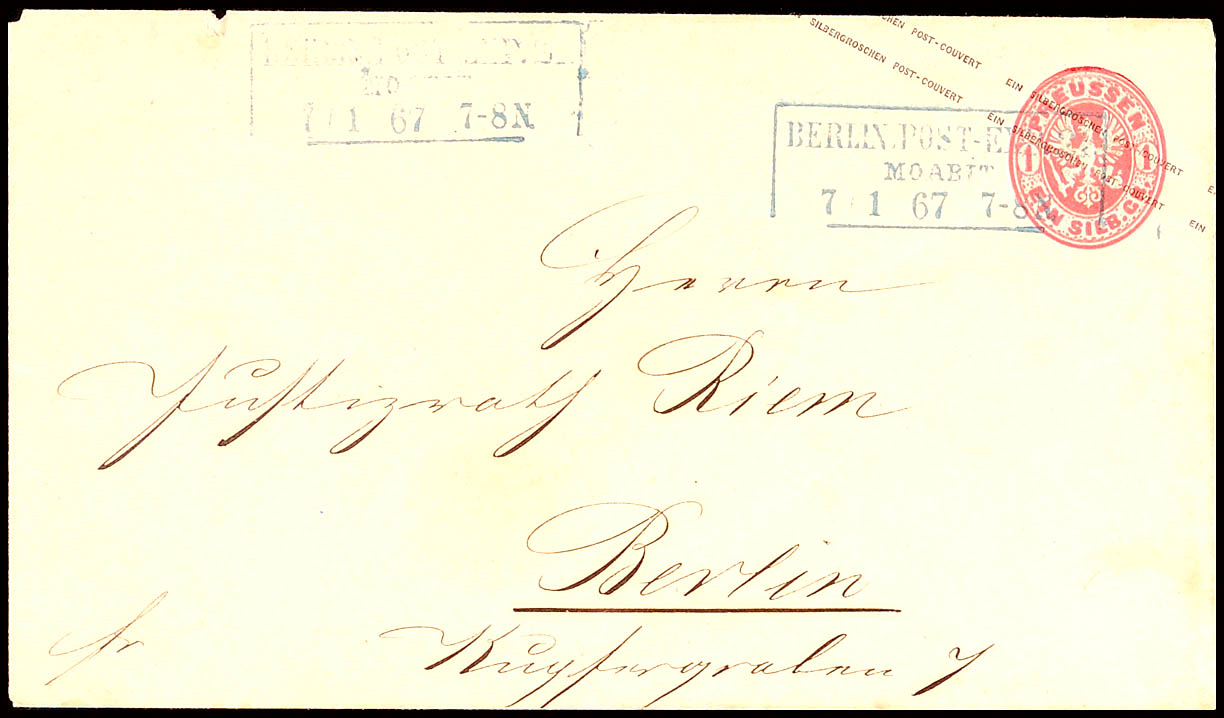 EIN SILBERGROSCHEN POST-COUVERT EIN SILBERGROSCHEN POST-COUVERT
SILBERGROSCHEN POST-COUVERT EIN SILBERGROSCHEN POST-COUVERT EIN
7 1 67 7-8N
BERLIN.POST-E
MOABIT
7 1 67 7-8N
PREUSSEN
1 1
EIN SILB. GR.
Herrn
Justizrath Riem
Berlin
fr Kupfergraben 7